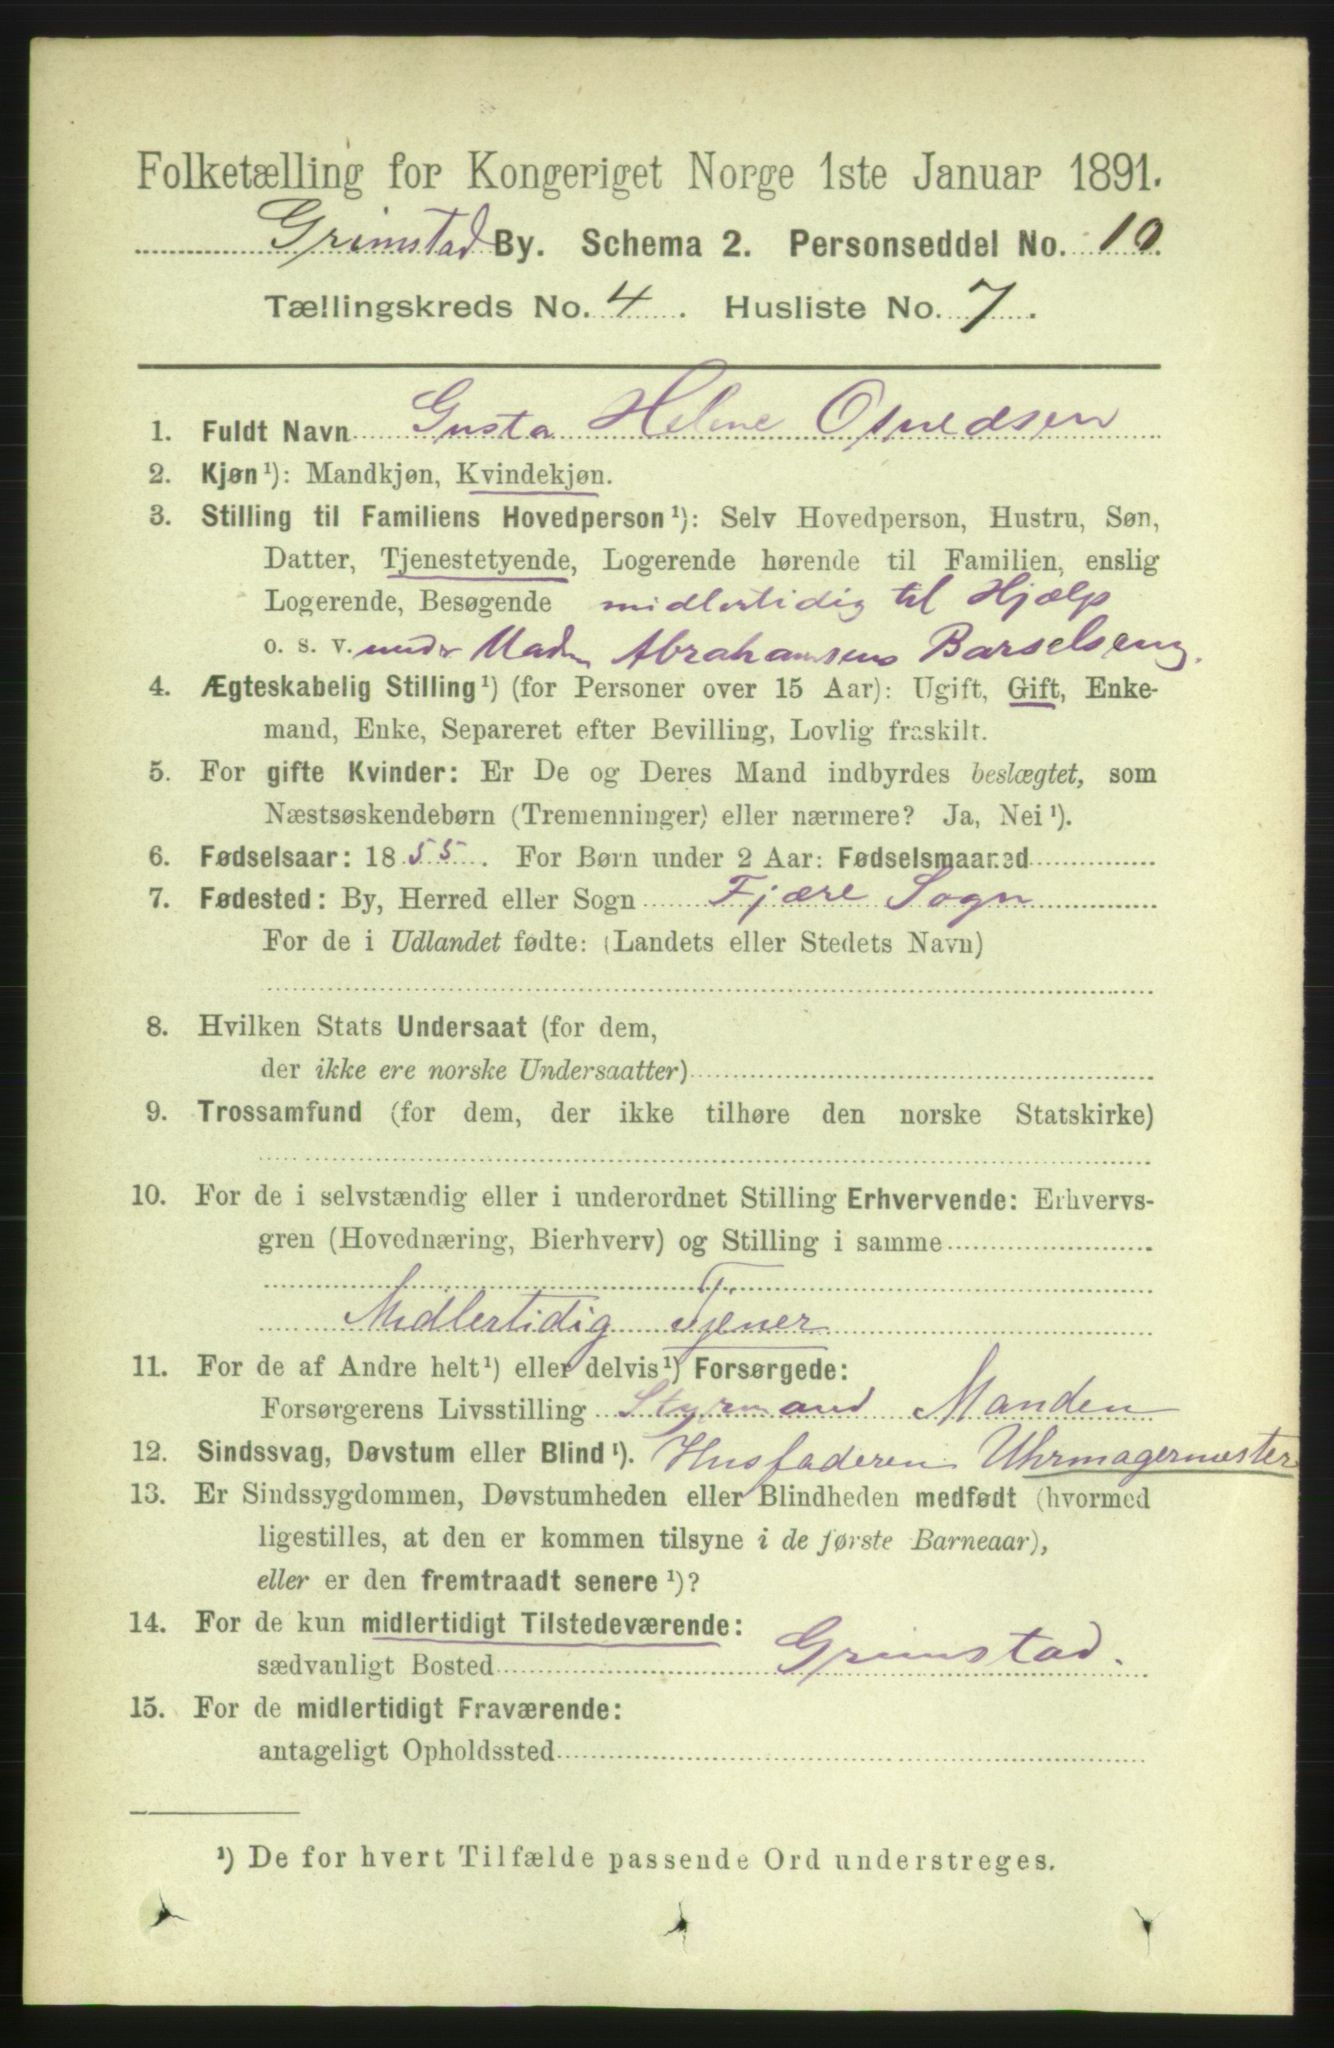 Folketælling for Kongeriget Norge 1ste Januar 1891.
Grimstad By. Schema 2. Personseddel No. 10.
Tællingskreds No. 4. Husliste No. 7.
1. Fuldt Navn Gusta Helene
2. Kjøn¹): Mandkjøn, Kvindekjøn.
3. Stilling til Familiens Hovedperson¹): Selv Hovedperson, Hustru, Søn,
Datter, Tjenestetyende, Logerende hørende til Familien, enslig
Logerende, Besøgende midlertidig til Hjælp
o. s. v. under Madm Abrahamsens Barselseng.
4. Ægteskabelig Stilling¹) (for Personer over 15 Aar): Ugift, Gift, Enke-
mand, Enke, Separeret efter Bevilling, Lovlig fraskilt.
5. For gifte Kvinder: Er De og Deres Mand indbyrdes beslægtet, som
Næstsøskendebørn (Tremenninger) eller nærmere? Ja, Nei¹).
6. Fødselsaar: 1855. For Børn under 2 Aar: Fødselsmaaned
7. Fødested: By, Herred eller Sogn Fjære Sogn
For de i Udlandet fødte: (Landets eller Stedets Navn)
8. Hvilken Stats Undersaat (for dem,
der ikke ere norske Undersaatter)
9. Trossamfund (for dem, der ikke tilhøre den norske Statskirke)
10. For de i selvstændig eller i underordnet Stilling Erhvervende: Erhvervs-
gren (Hovednæring, Bierhverv) og Stilling i samme
Midlertidig Tjener
11. For de af Andre helt¹) eller delvis¹) Forsørgede:
Forsørgerens Livsstilling Styrmand Manden
12. Sindssvag, Døvstum eller Blind¹). Husfaderen Uhrmagermester
13. Er Sindssygdommen, Døvstumheden eller Blindheden medfødt (hvormed
ligestilles, at den er kommen tilsyne i de første Barneaar),
eller er den fremtraadt senere¹)?
14. For de kun midlertidigt Tilstedeværende:
sædvanligt Bosted Grimstad.
15. For de midlertidigt Fraværende:
antageligt Opholdssted
¹) De for hvert Tilfælde passende Ord understreges.